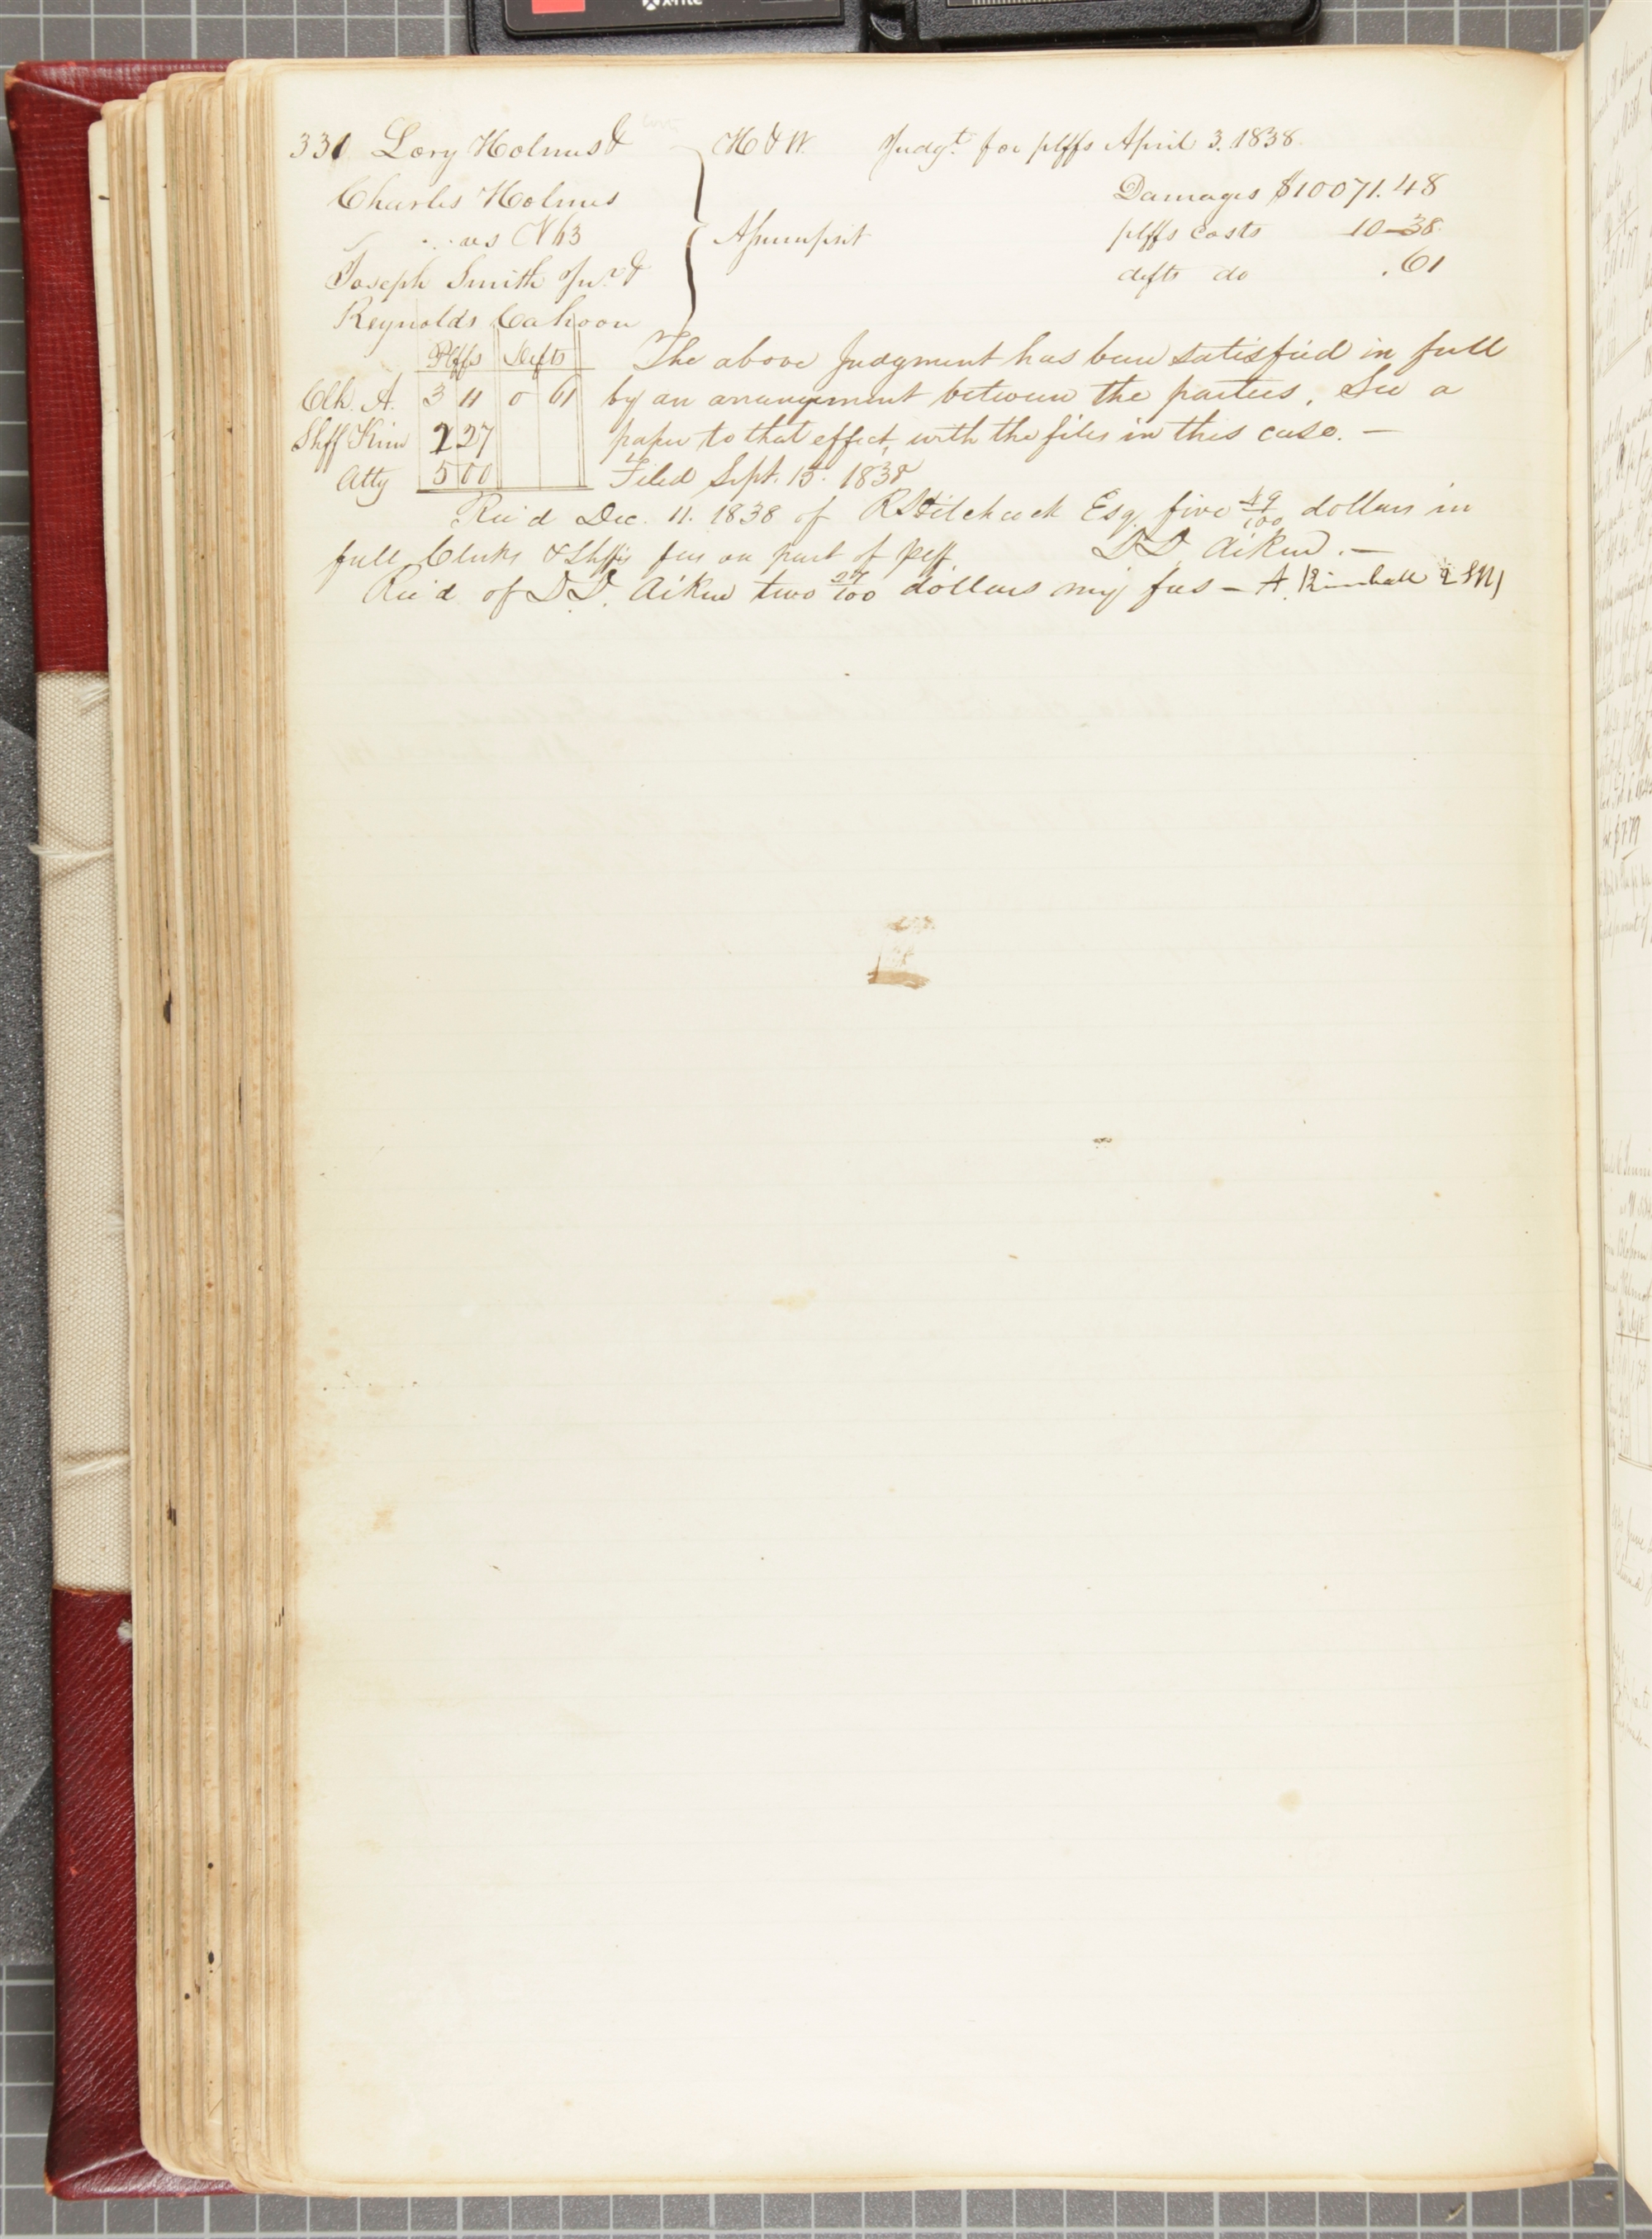 331 Lory Holmes & H & W. Judgt. for plffs April 3. 1838.
Charles Holmes Damages $10071.48
vs N 63 Assumpsit plffs costs 10-38
Joseph Smith Jur. & defts do .61
Reynolds Cahoon
Plffs Defts The above Judgment has been satisfied in full
Clk. A. 3 11 0 61 by an arrangement between the parties. See a
Shff Kim 2 27 paper to that effect, with the files in this case. —
Atty 5 00 Filed Sept. 15. 1838
Rec'd Dec. 11. 1838 of R Hitchcock Esq. five 49/100 dollars in
full Clerks & Shffs fees on part of plff. D D Aiken. —
Rec'd of D D. Aiken two 27/100 dollars my fees — A. Kimball